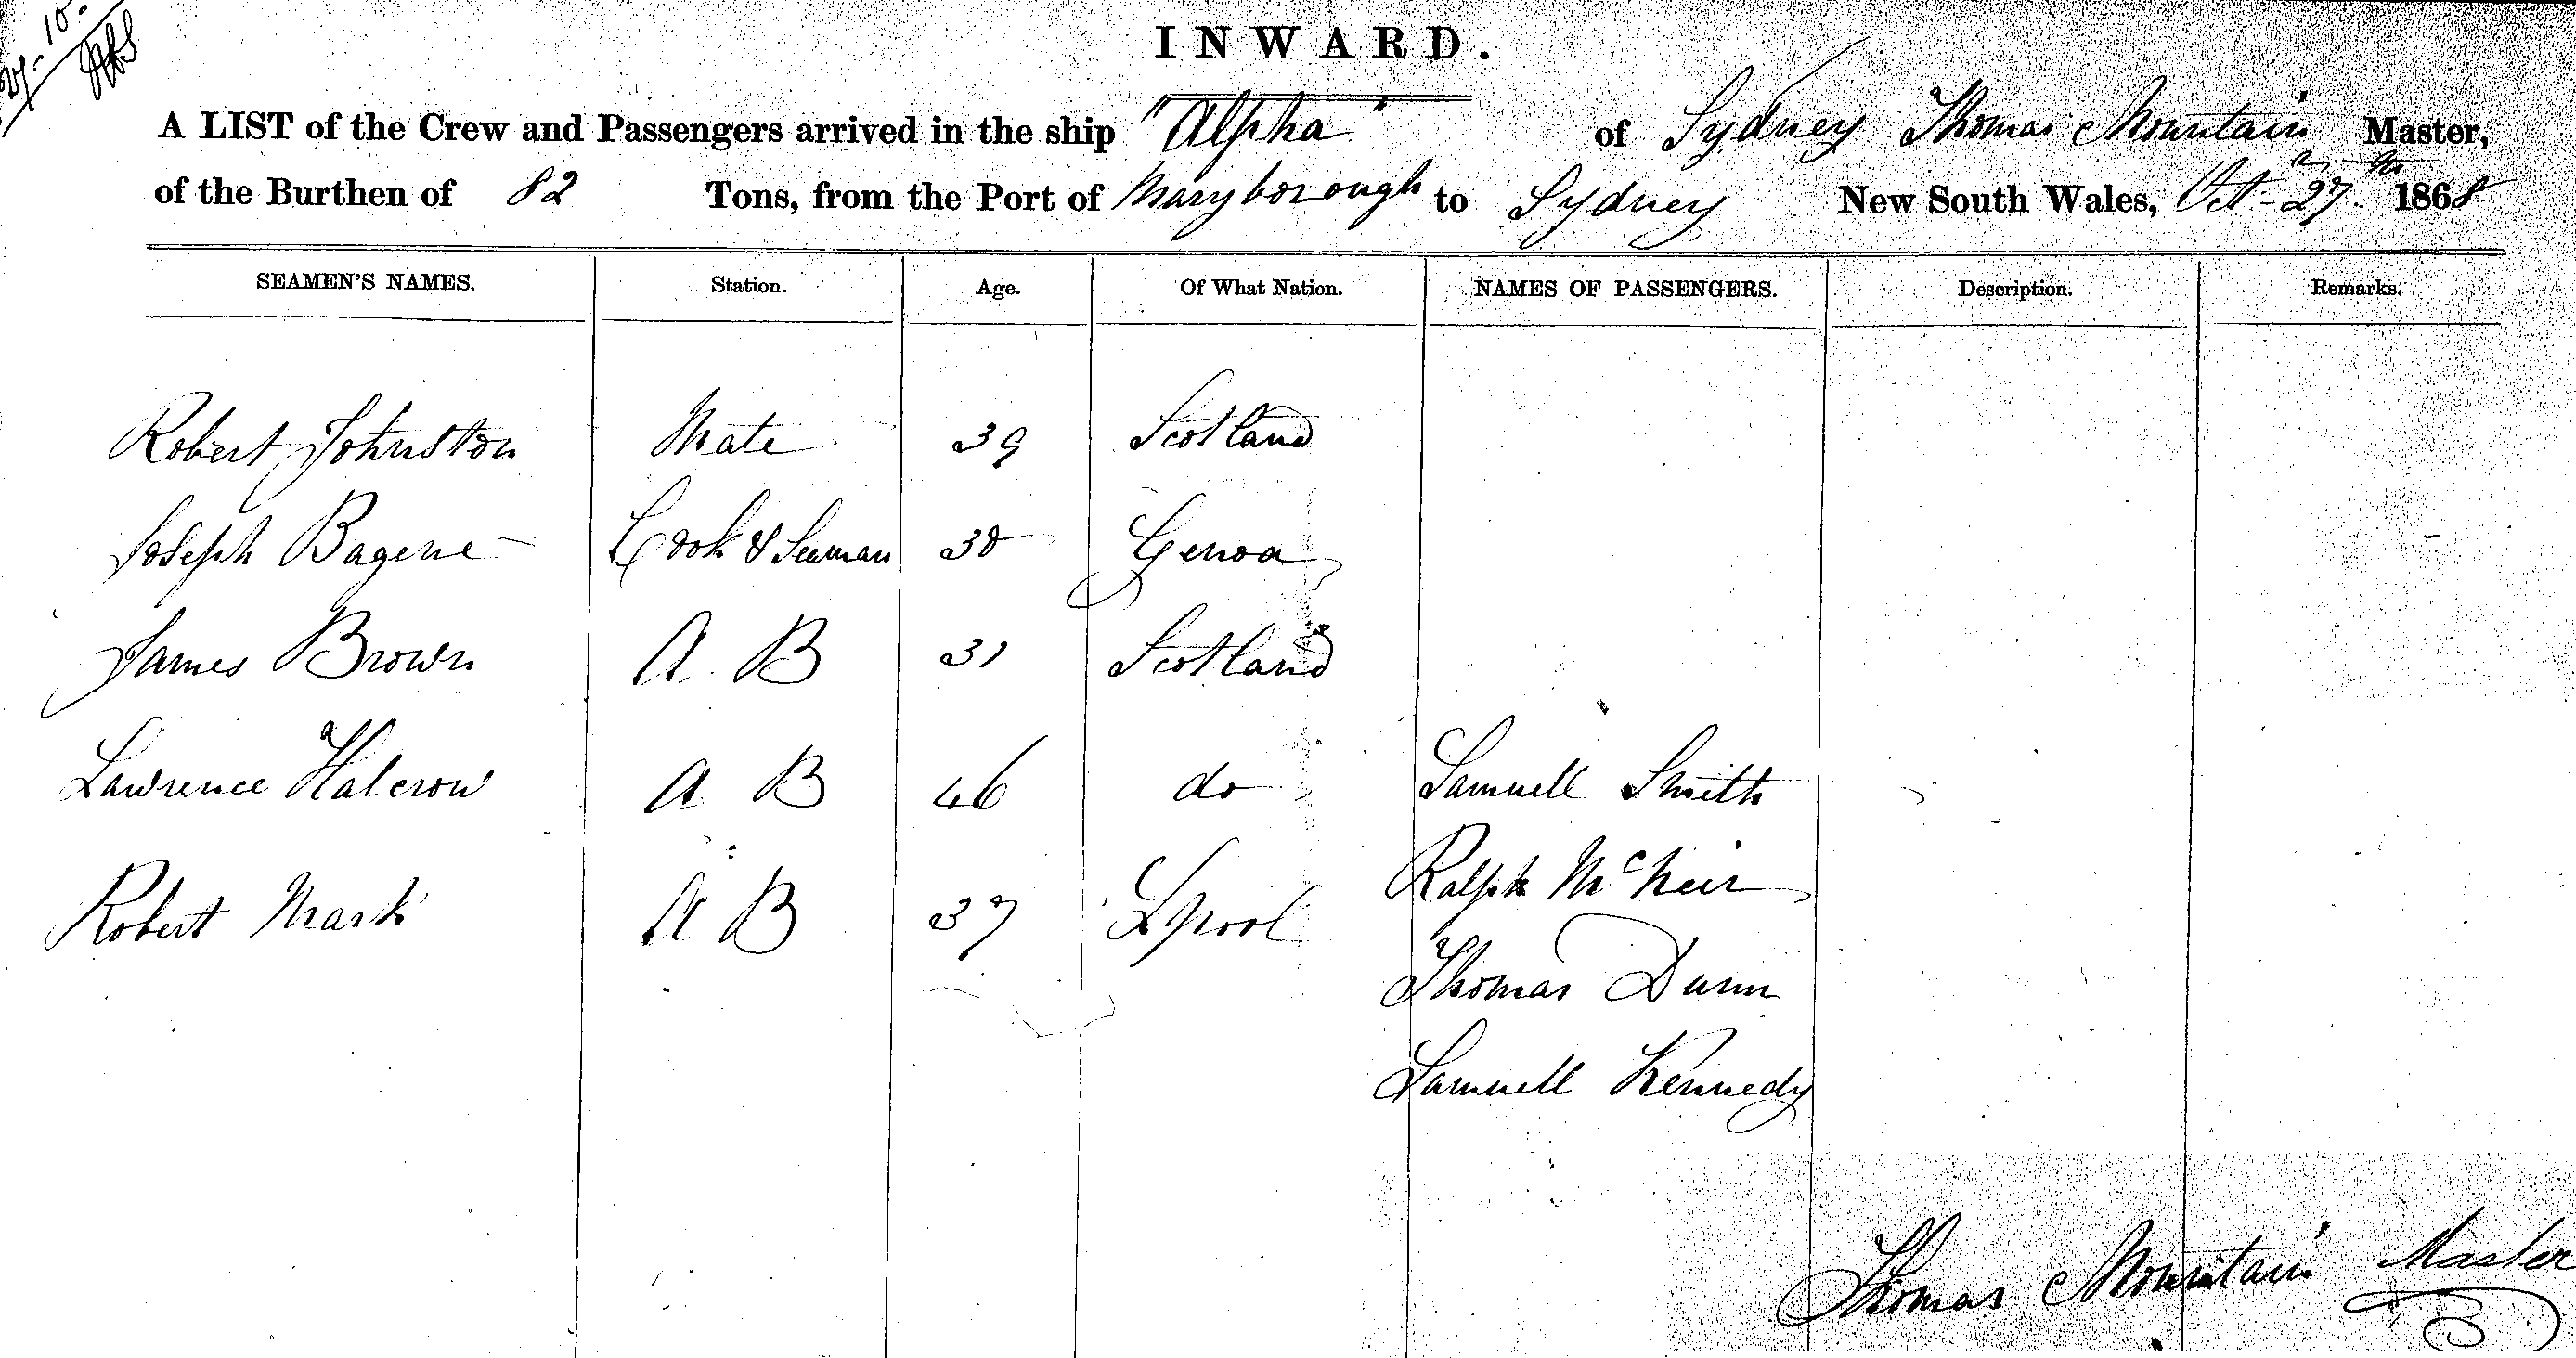 27-10-
INWARD.
A LIST of the Crew and Passengers arrived in the ship "Alpha" of Sydney Thomas Mountain Master,
of the Burthen of 82 Tons, from the Port of Maryborough to Sydney New South Wales, Oct 27th 1868
SEAMEN'S NAMES. Station. Age. Of What Nation. NAMES OF PASSENGERS. Description. Remarks.
Robert Johnston Mate 39 Scotland
Joseph Bagene Cook & Seaman 38 Genoa
James Brown A B 31 Scotland
Lawrence Halcrow A B 46 do Samuell Smith
Robert Mark A B 37 Lpool Ralph McNeir
Thomas Dunn
Samuell Kennedy
Thomas Mountain Master